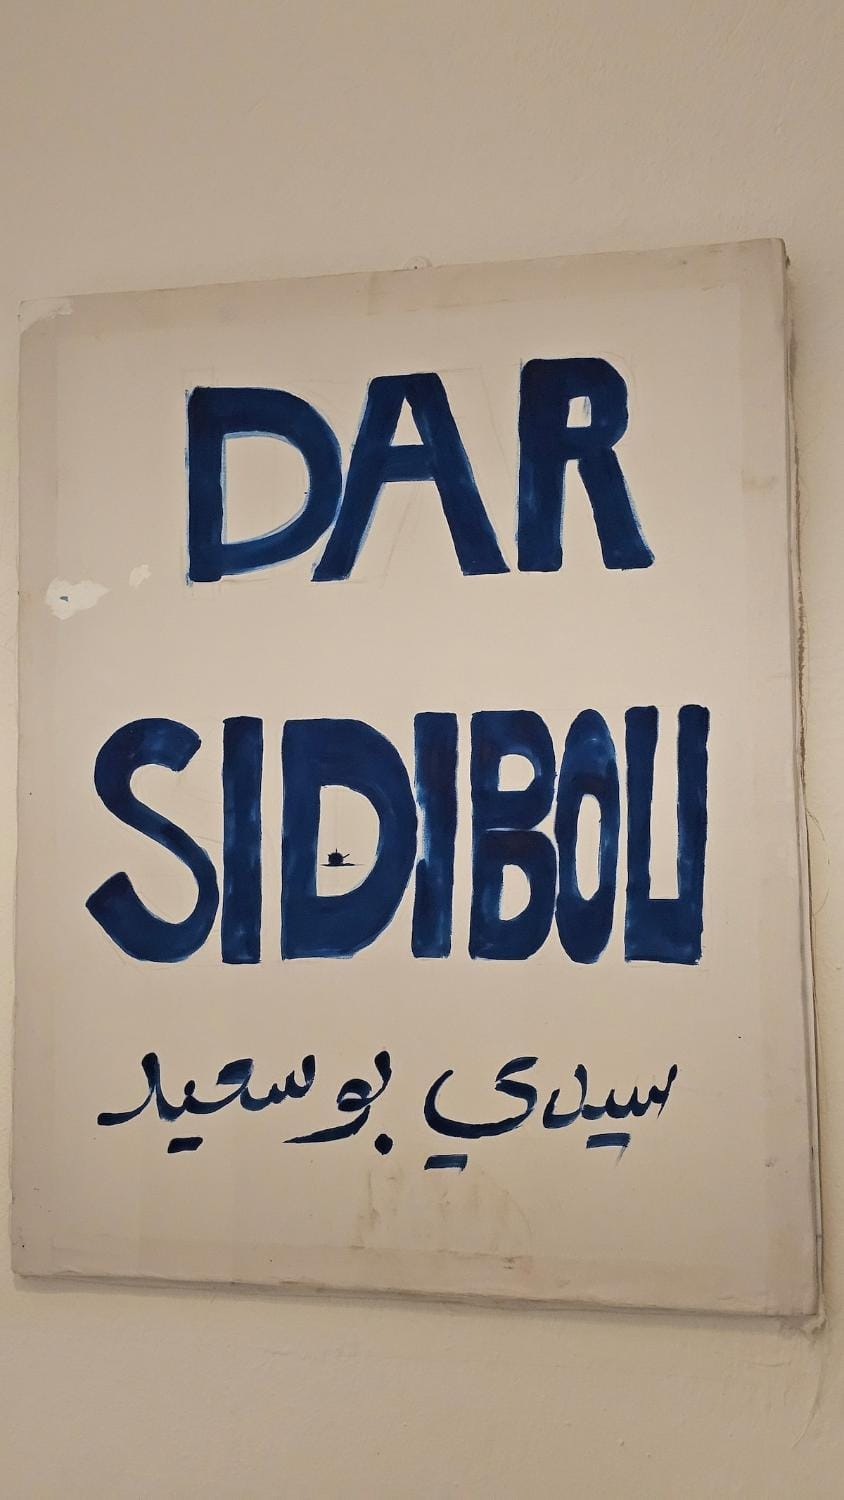 DAR
SIDIBOU
سيدي بو سعيد